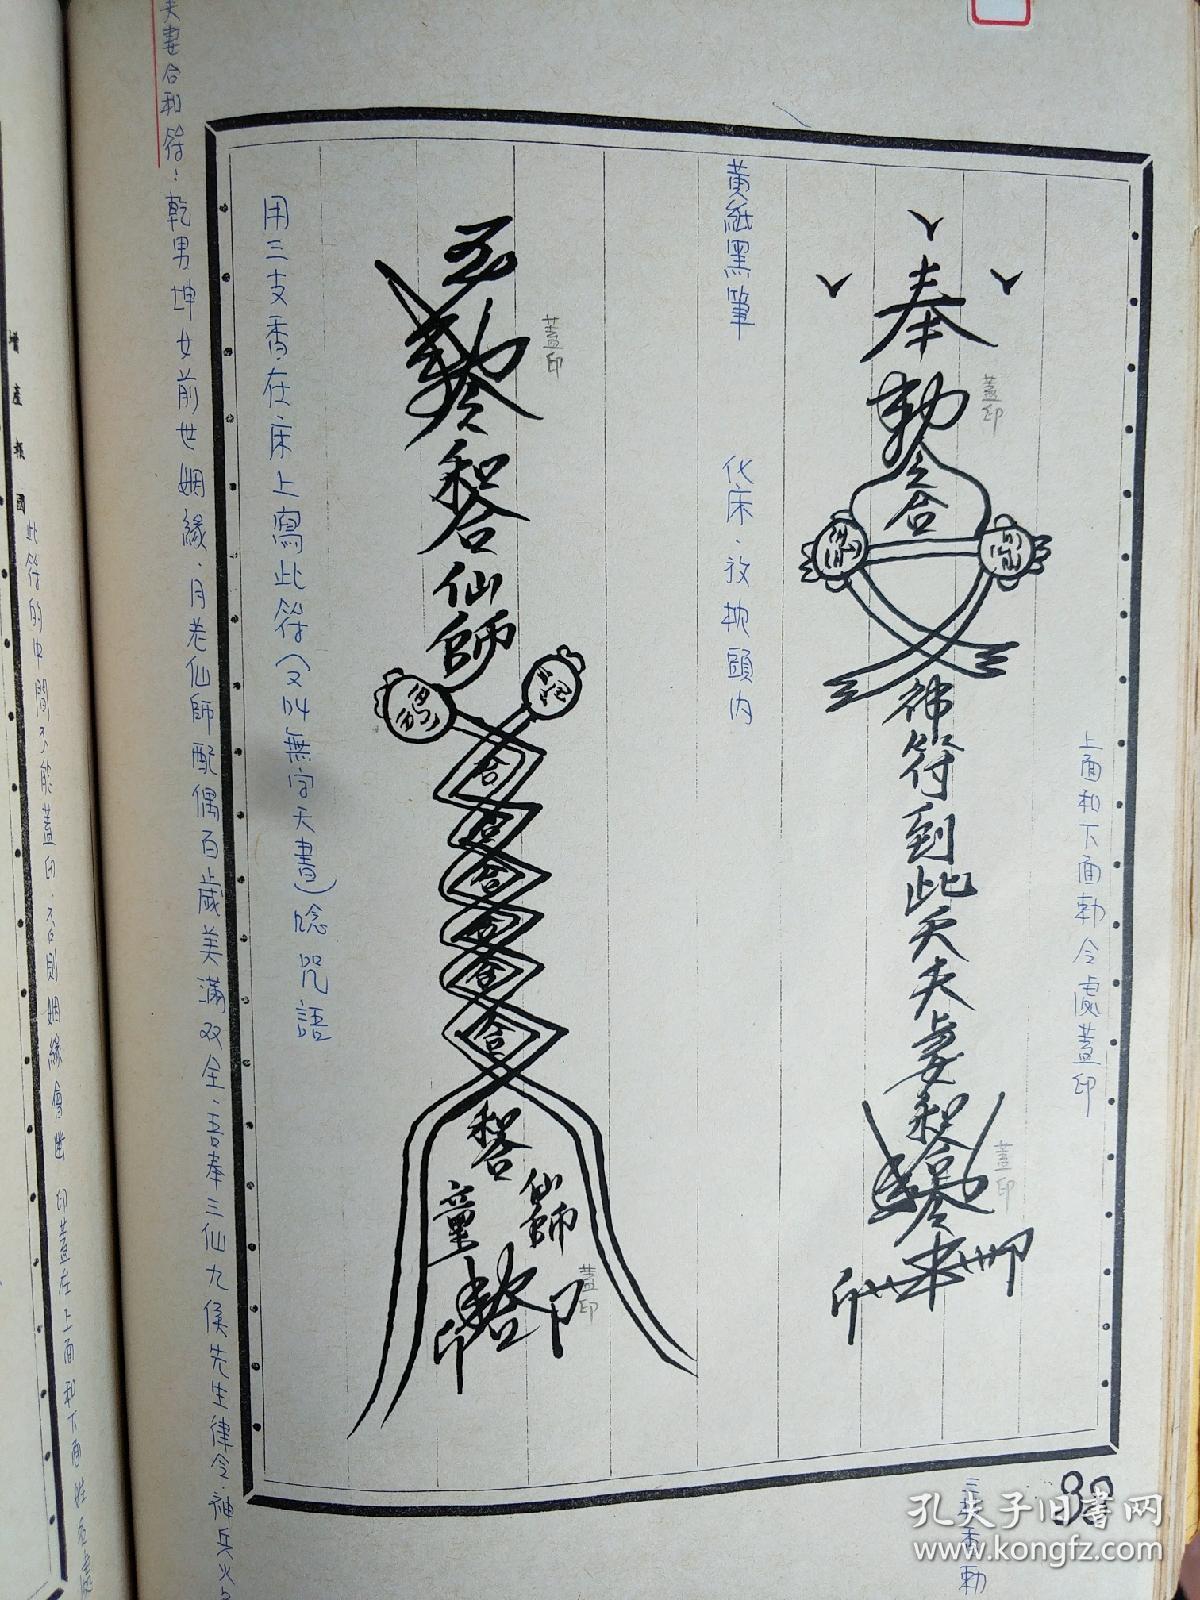 奉
勅令
合
神符到此夫夫妻和合
印
印
蓋印
蓋印
上面和下面勅令處蓋印
三支香勅
黄紙黑筆
化床.放枕頭内
玉
勅令
和合仙師
合
合
合
合
合
合
和合
仙師
童
印
印
蓋印
蓋印
用三支香.在床上寫此符(又叫無字天書)唸咒語
夫妻合和符:乾男坤女前世姻緣.月老仙師配偶百歲美滿双全.吾奉三仙九侯先生律令神兵火
此符的中間不能蓋印.否則姻緣會
印蓋在上面和下面
產報國
孔夫子旧书网
www.kongfz.com